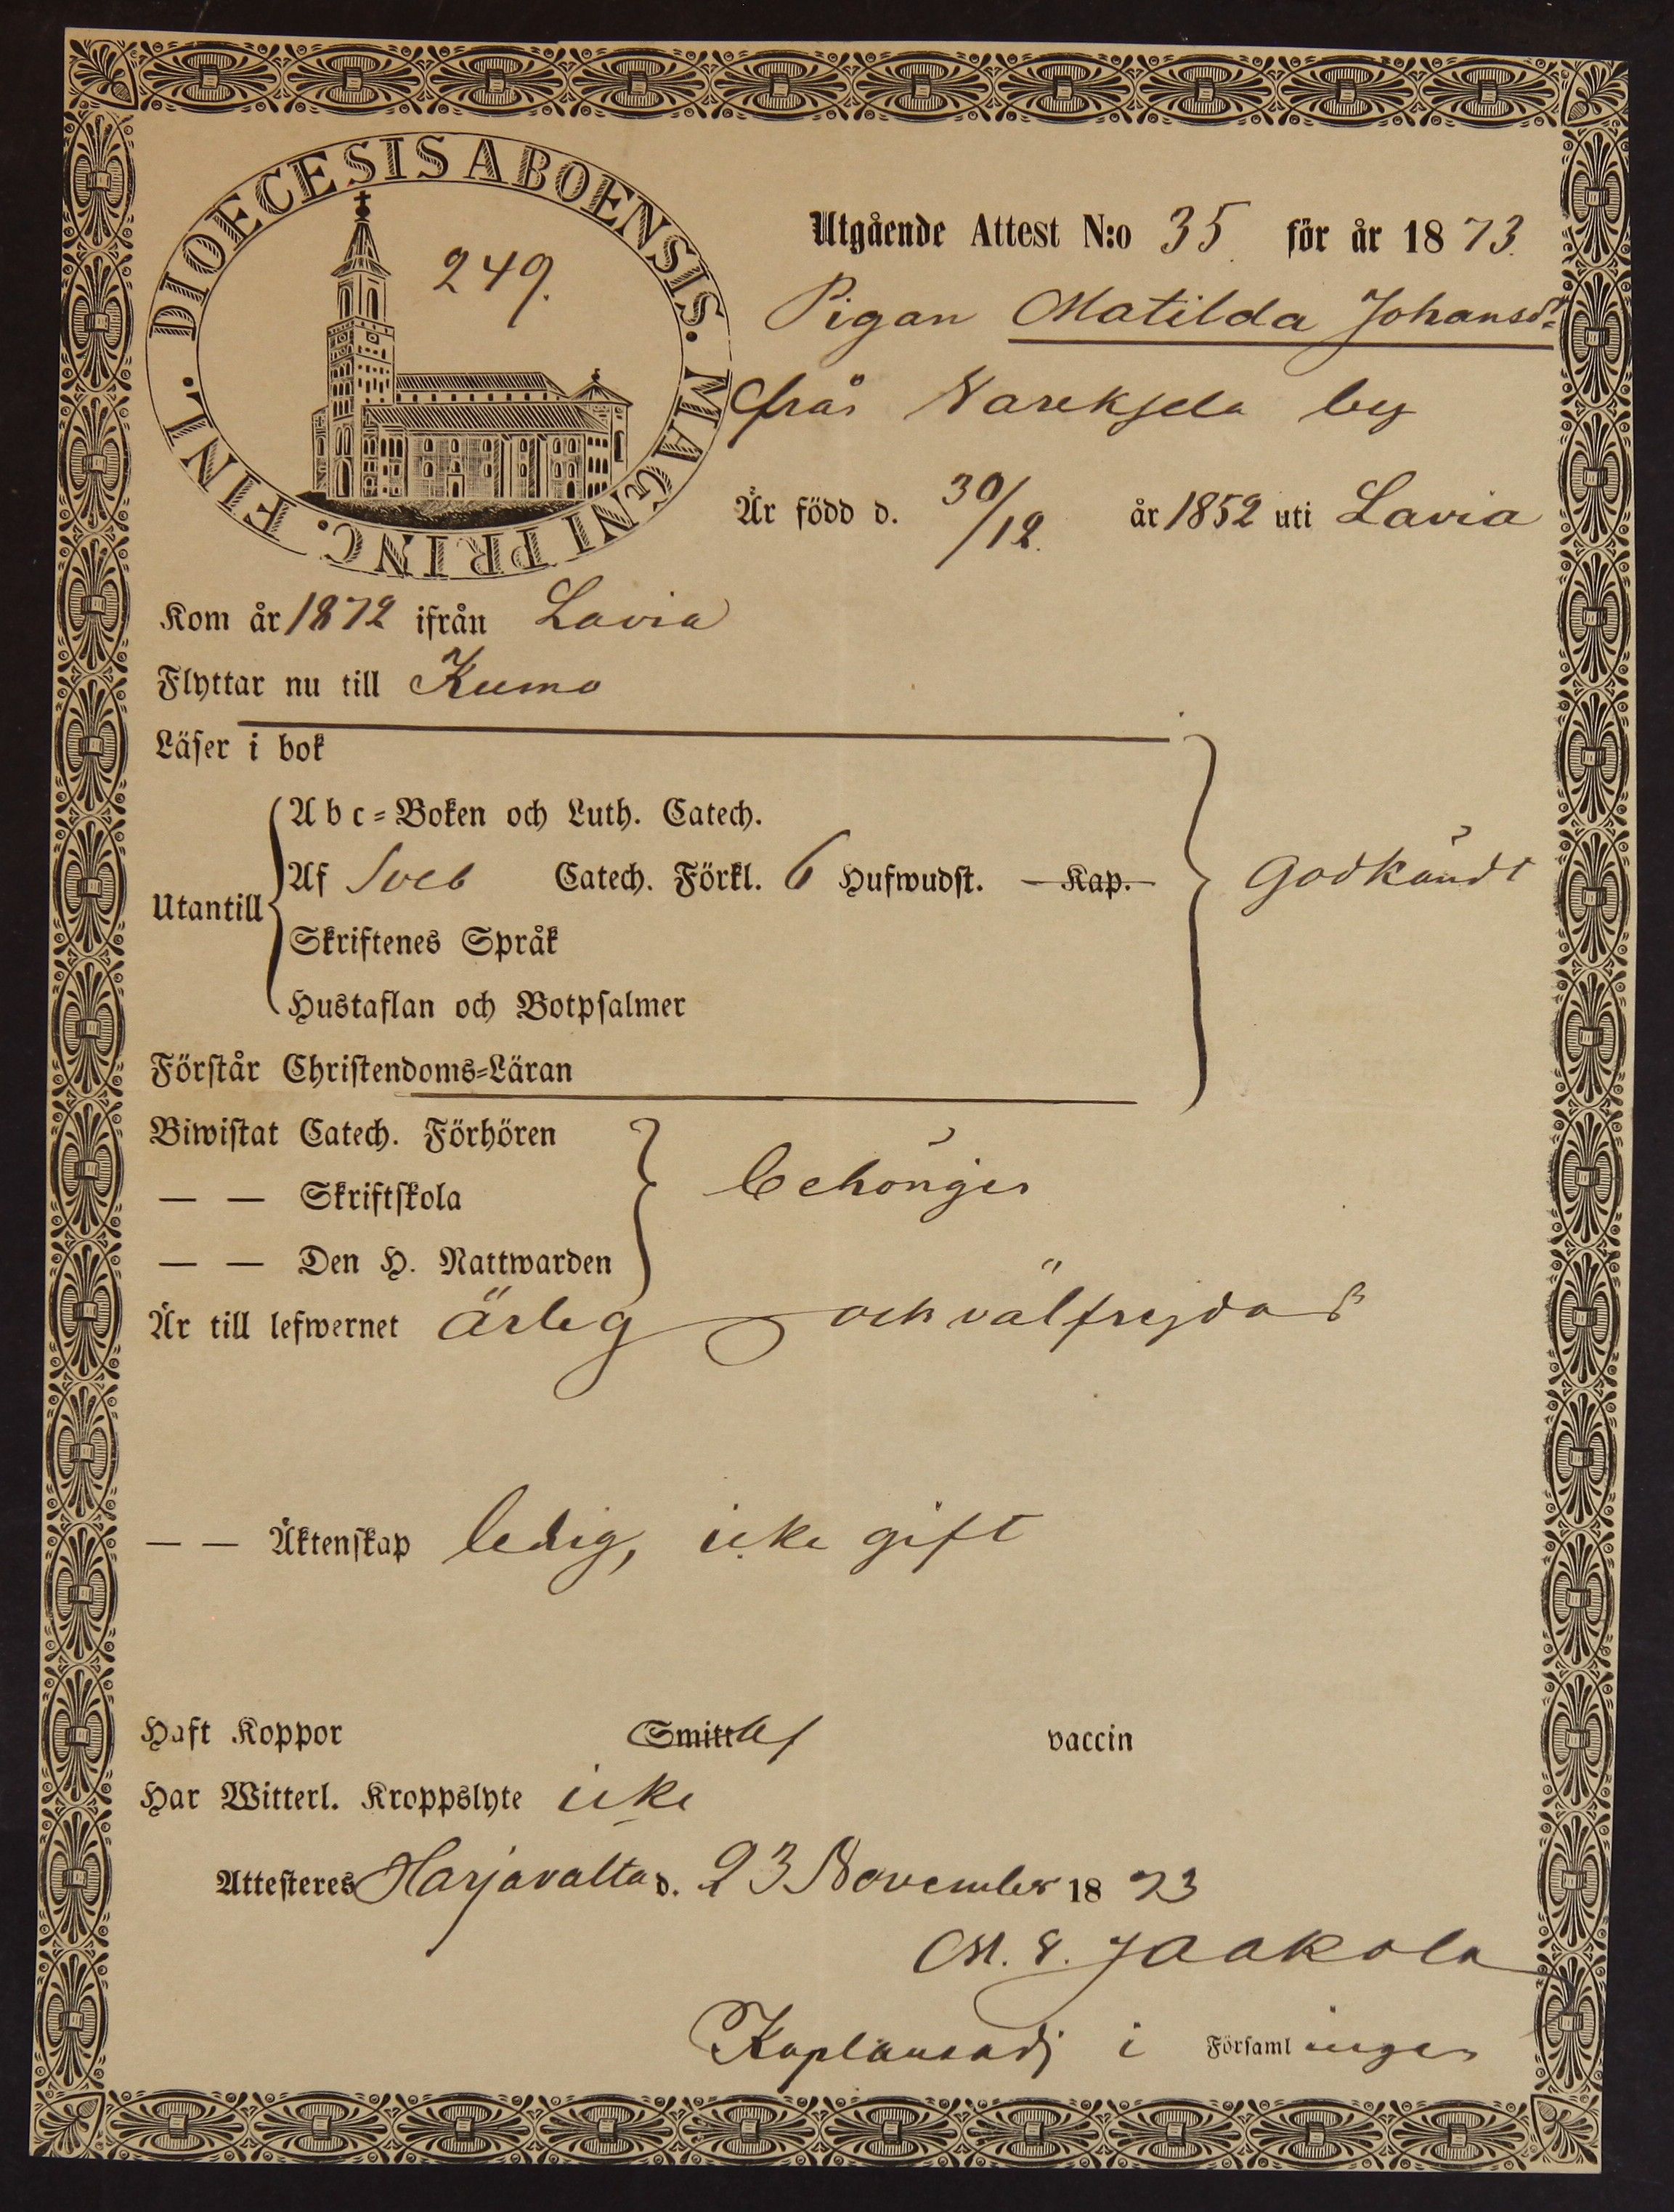 DIOECESIS ABOENSIS. MAGNI PRINC. FINL.
249.
Utgående Attest N:o 35. för år 1873.
Pigan Matilda Johansdr
från by
Är född d. 30/12. år 1852 uti Lavia
Kom år 1872 ifrån Lavia
Flyttar nu till Kumo
Läser i bok
Abc-Boken och Luth. Catech.
Utantill Af Sveb Catech. Förkl. 6 Hufwudst. Kap. Godkändt
Skriftenes Språk
Hustaflan och Botpsalmer
Förstår Christendoms-Läran
Biwistat Catech. Förhören
— — Skriftskola behörigen
— — Den H. Nattwarden
Är till lefwernet ärlig och välfrejdad
— — Äktenskap ledig, icke gift
Haft Koppor Smitt af vaccin
Har Witterl. Kroppslyte icke
Attesteres Harjavalta d. 23 November 1873
M. E. Jaakola
Kaplansadj i Församlingen